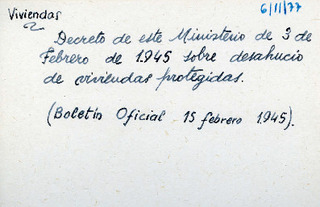 Viviendas
6/II/77
Decreto de este Ministerio de 3 de
Febrero de 1.945 sobre desahucio
de viviendas protegidas.
(Boletín Oficial - 15 febrero 1945).